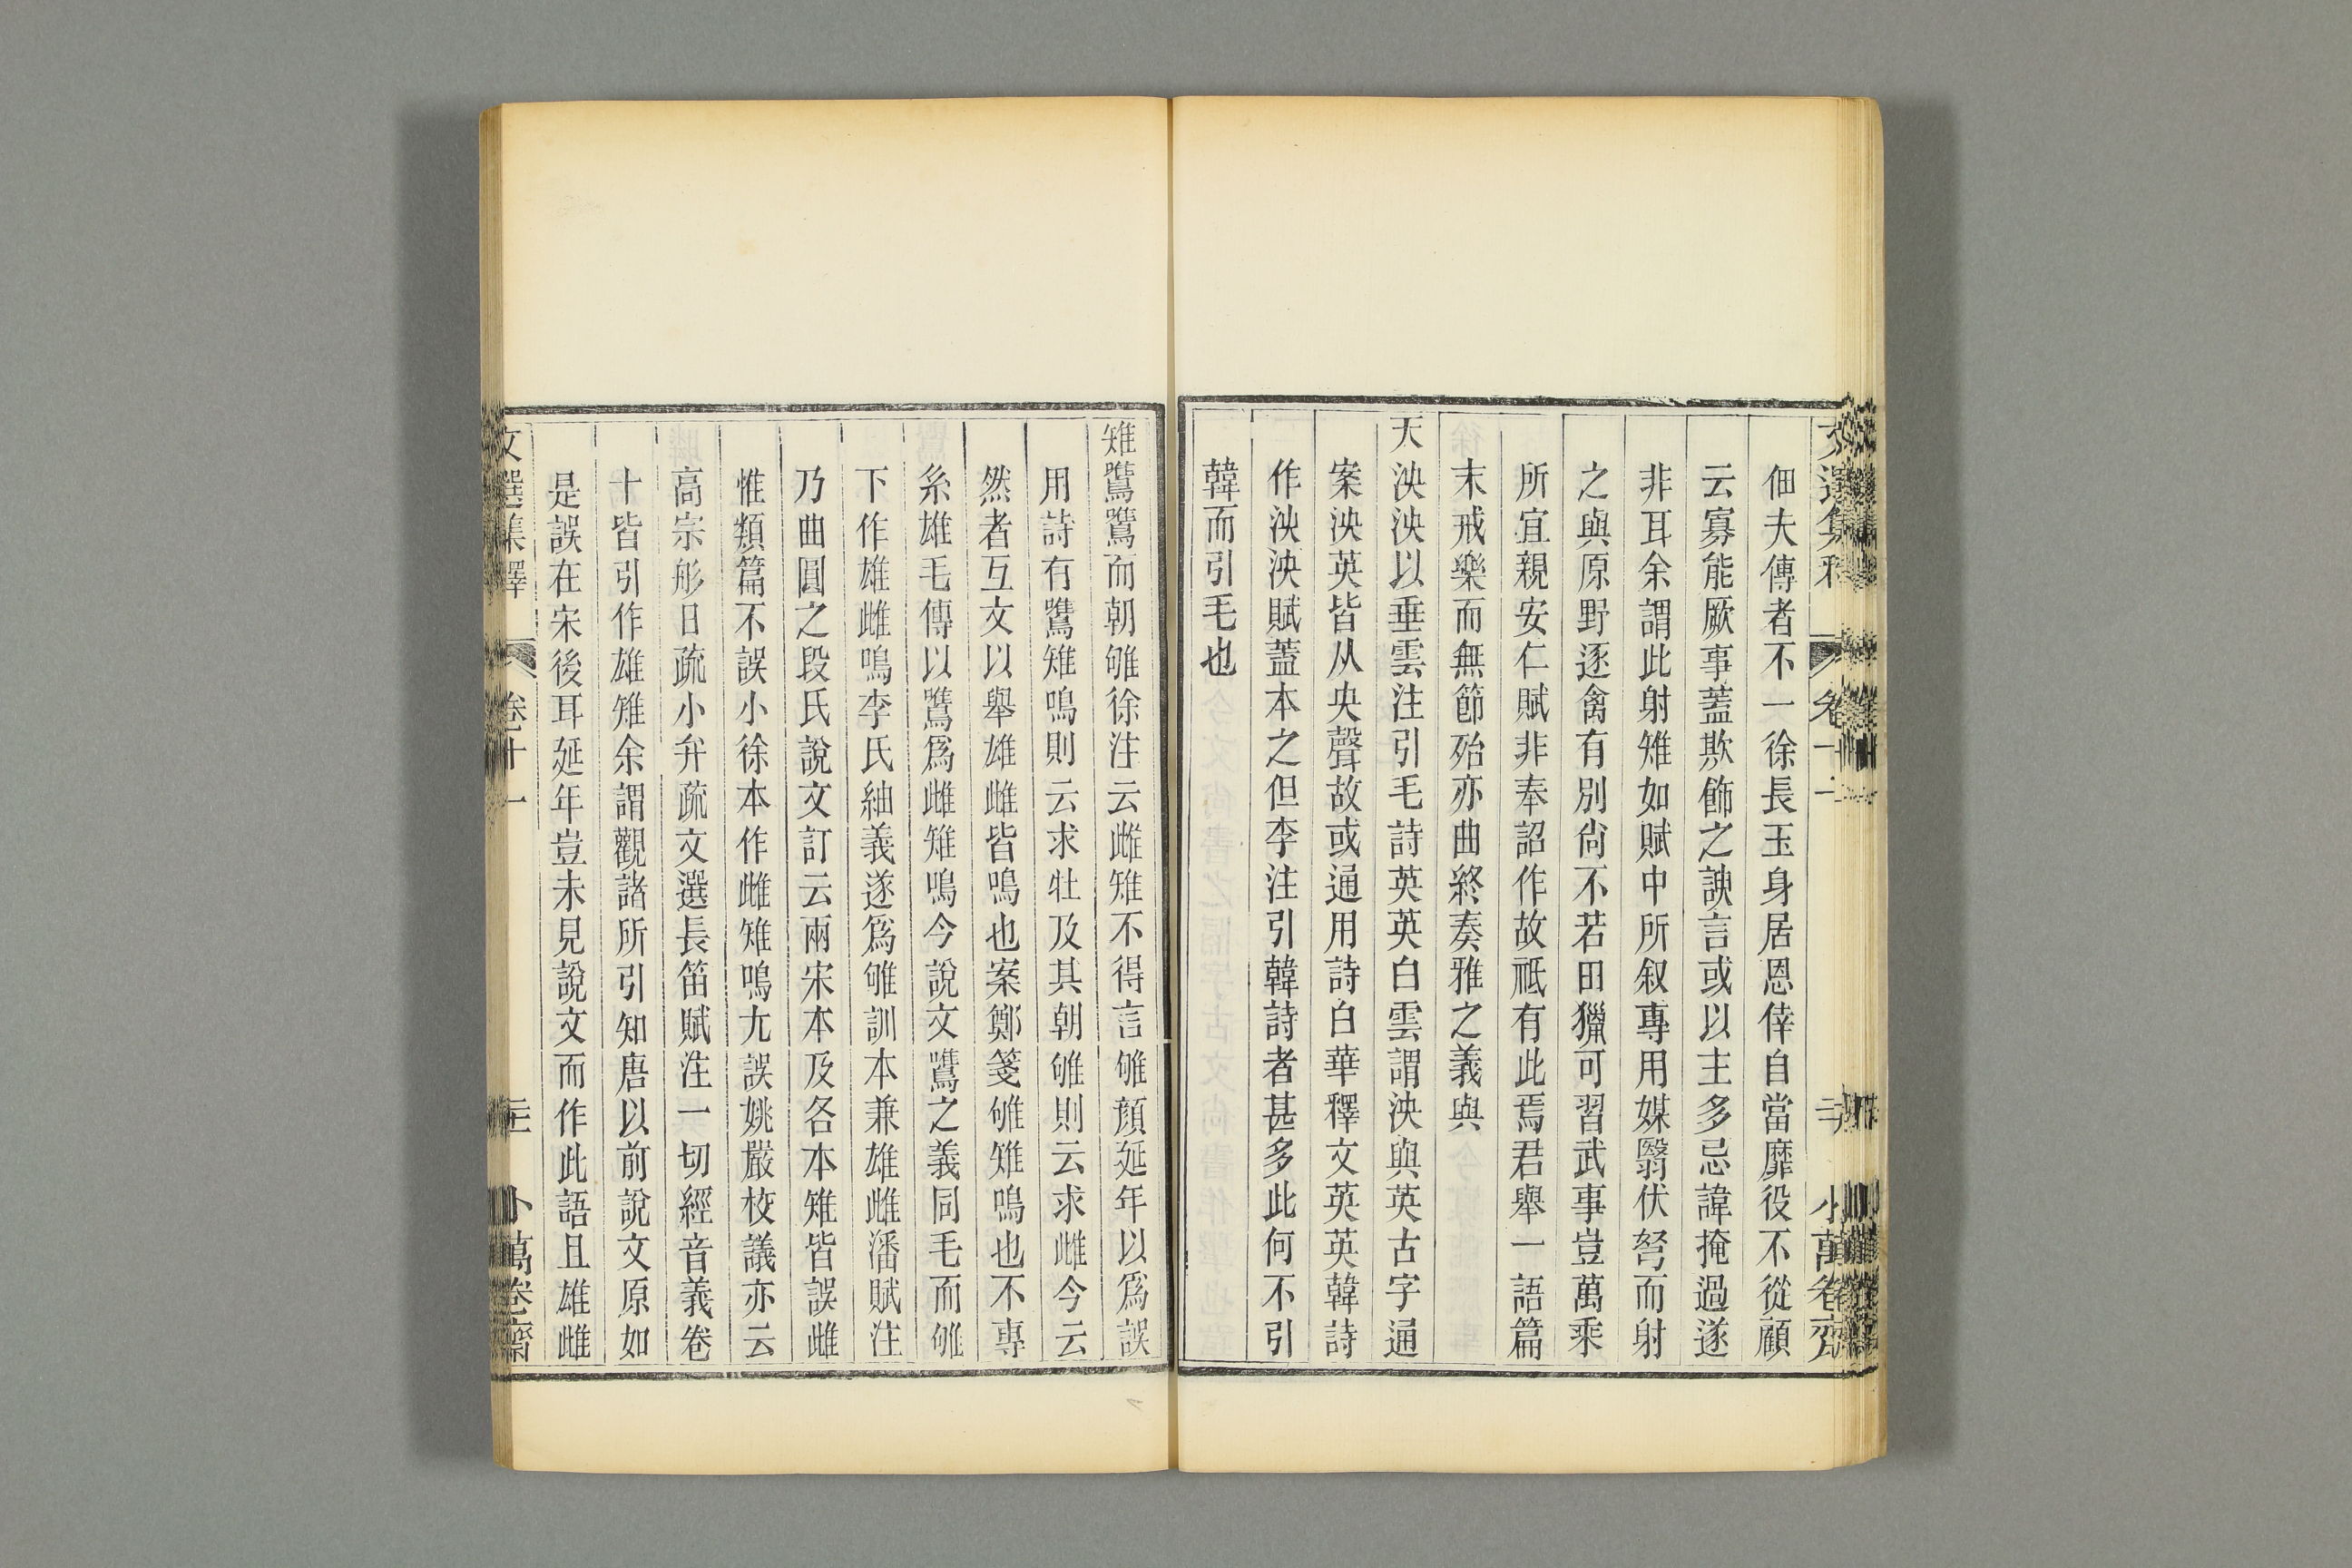 佃夫傳者不一徐長玉身居恩倖自當靡役不從顧
云寡能厥事蓋欺飾之諛言或以主多忌諱掩過遂
非耳余謂此射雉如賦中所叙專用媒翳伏弩而射
之與原野逐禽有別尙不若田獵可習武事豈萬乘
所宜親安仁賦非奉詔作故祗有此焉君舉一語篇
末戒樂而無節殆亦曲終奏雅之義與
天泱泱以垂雲注引毛詩英英白雲謂泱與英古字通
案泱英皆从央聲故或通用詩白華釋文英英韓詩
作泱泱賦蓋本之但李注引韓詩者甚多此何不引
韓而引毛也
雉鷕鷕而朝雊徐注云雌雉不得言雊顏延年以爲誤
用詩有鷕雉鳴則云求牡及其朝雊則云求雌今云
然者互文以舉雄雌皆鳴也案鄭箋雊雉鳴也不專
系雄毛傳以鷕爲雌雉鳴今說文鷕之義同毛而雊
下作雄雌鳴李氏紬義遂爲雊訓本兼雄雌潘賦注
乃曲圓之段氏說文訂云兩宋本及各本雉皆誤雌
惟類篇不誤小徐本作雌雉鳴尢誤姚嚴校議亦云
高宗肜日疏小弁疏文選長笛賦注一切經音義卷
十皆引作雄雉余謂觀諸所引知唐以前說文原如
是誤在宋後耳延年豈未見說文而作此語且雄雌
文選集釋 卷十一 二十一 小萬卷齋